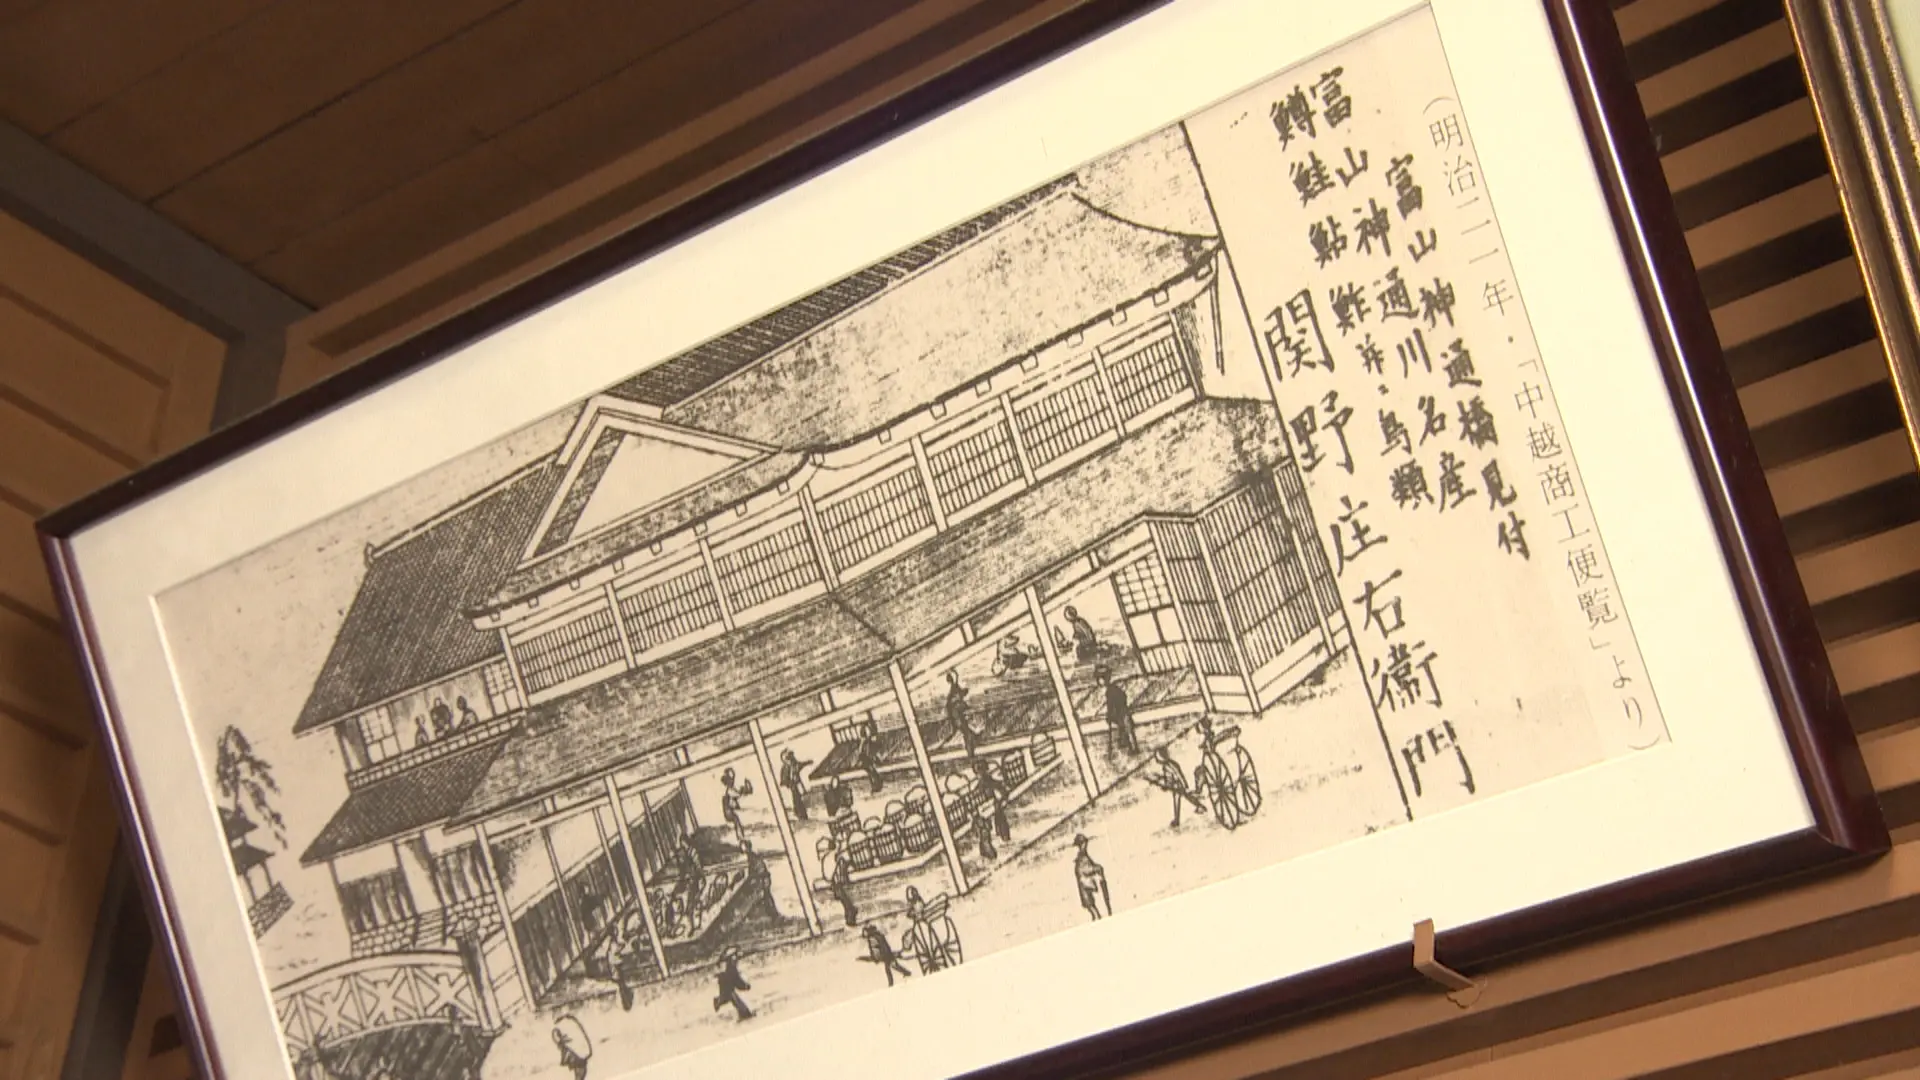 (明治二一年・「中越商工便覧」より)
富山神通橋見付
富山神通川名産
鱒鮭鮎鮓并ニ鳥類
関野庄右衛門